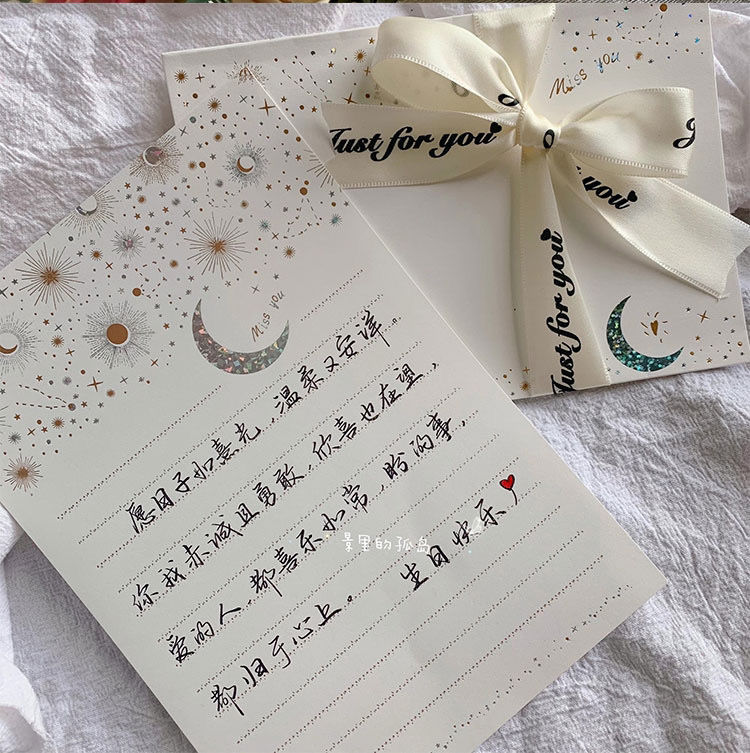 Miss you
Just for you
J
you
Just for you
Miss you
愿日子如熹光，温柔又安详。
你我赤诚且勇敢，欣喜也在望，
爱的人，都喜乐如常，盼的事，
都归于心上。 生日快乐
景里的孤岛